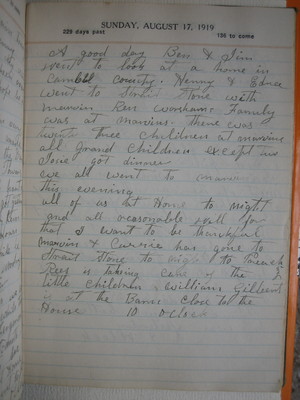 SUNDAY, AUGUST 17, 1919
229 days past 136 to come
A good day Ben & Jim
went to look at a home in
Cambll County. Henry &
went to Stone with
marvin Rev Worshams Family
was at marvins there was
twenty three Children at marvins
all Grand Children except two
Sone got dinner
we all went to
this evening
all of us ar Home to night
and all reasonable well for
that I want to be thankful
marvin & Currie has gone to
Strait Stone to night to Preach
Rees is taking care of the 3
little Children William Gilbert
is at the Barn Close to the
House 10 oClock